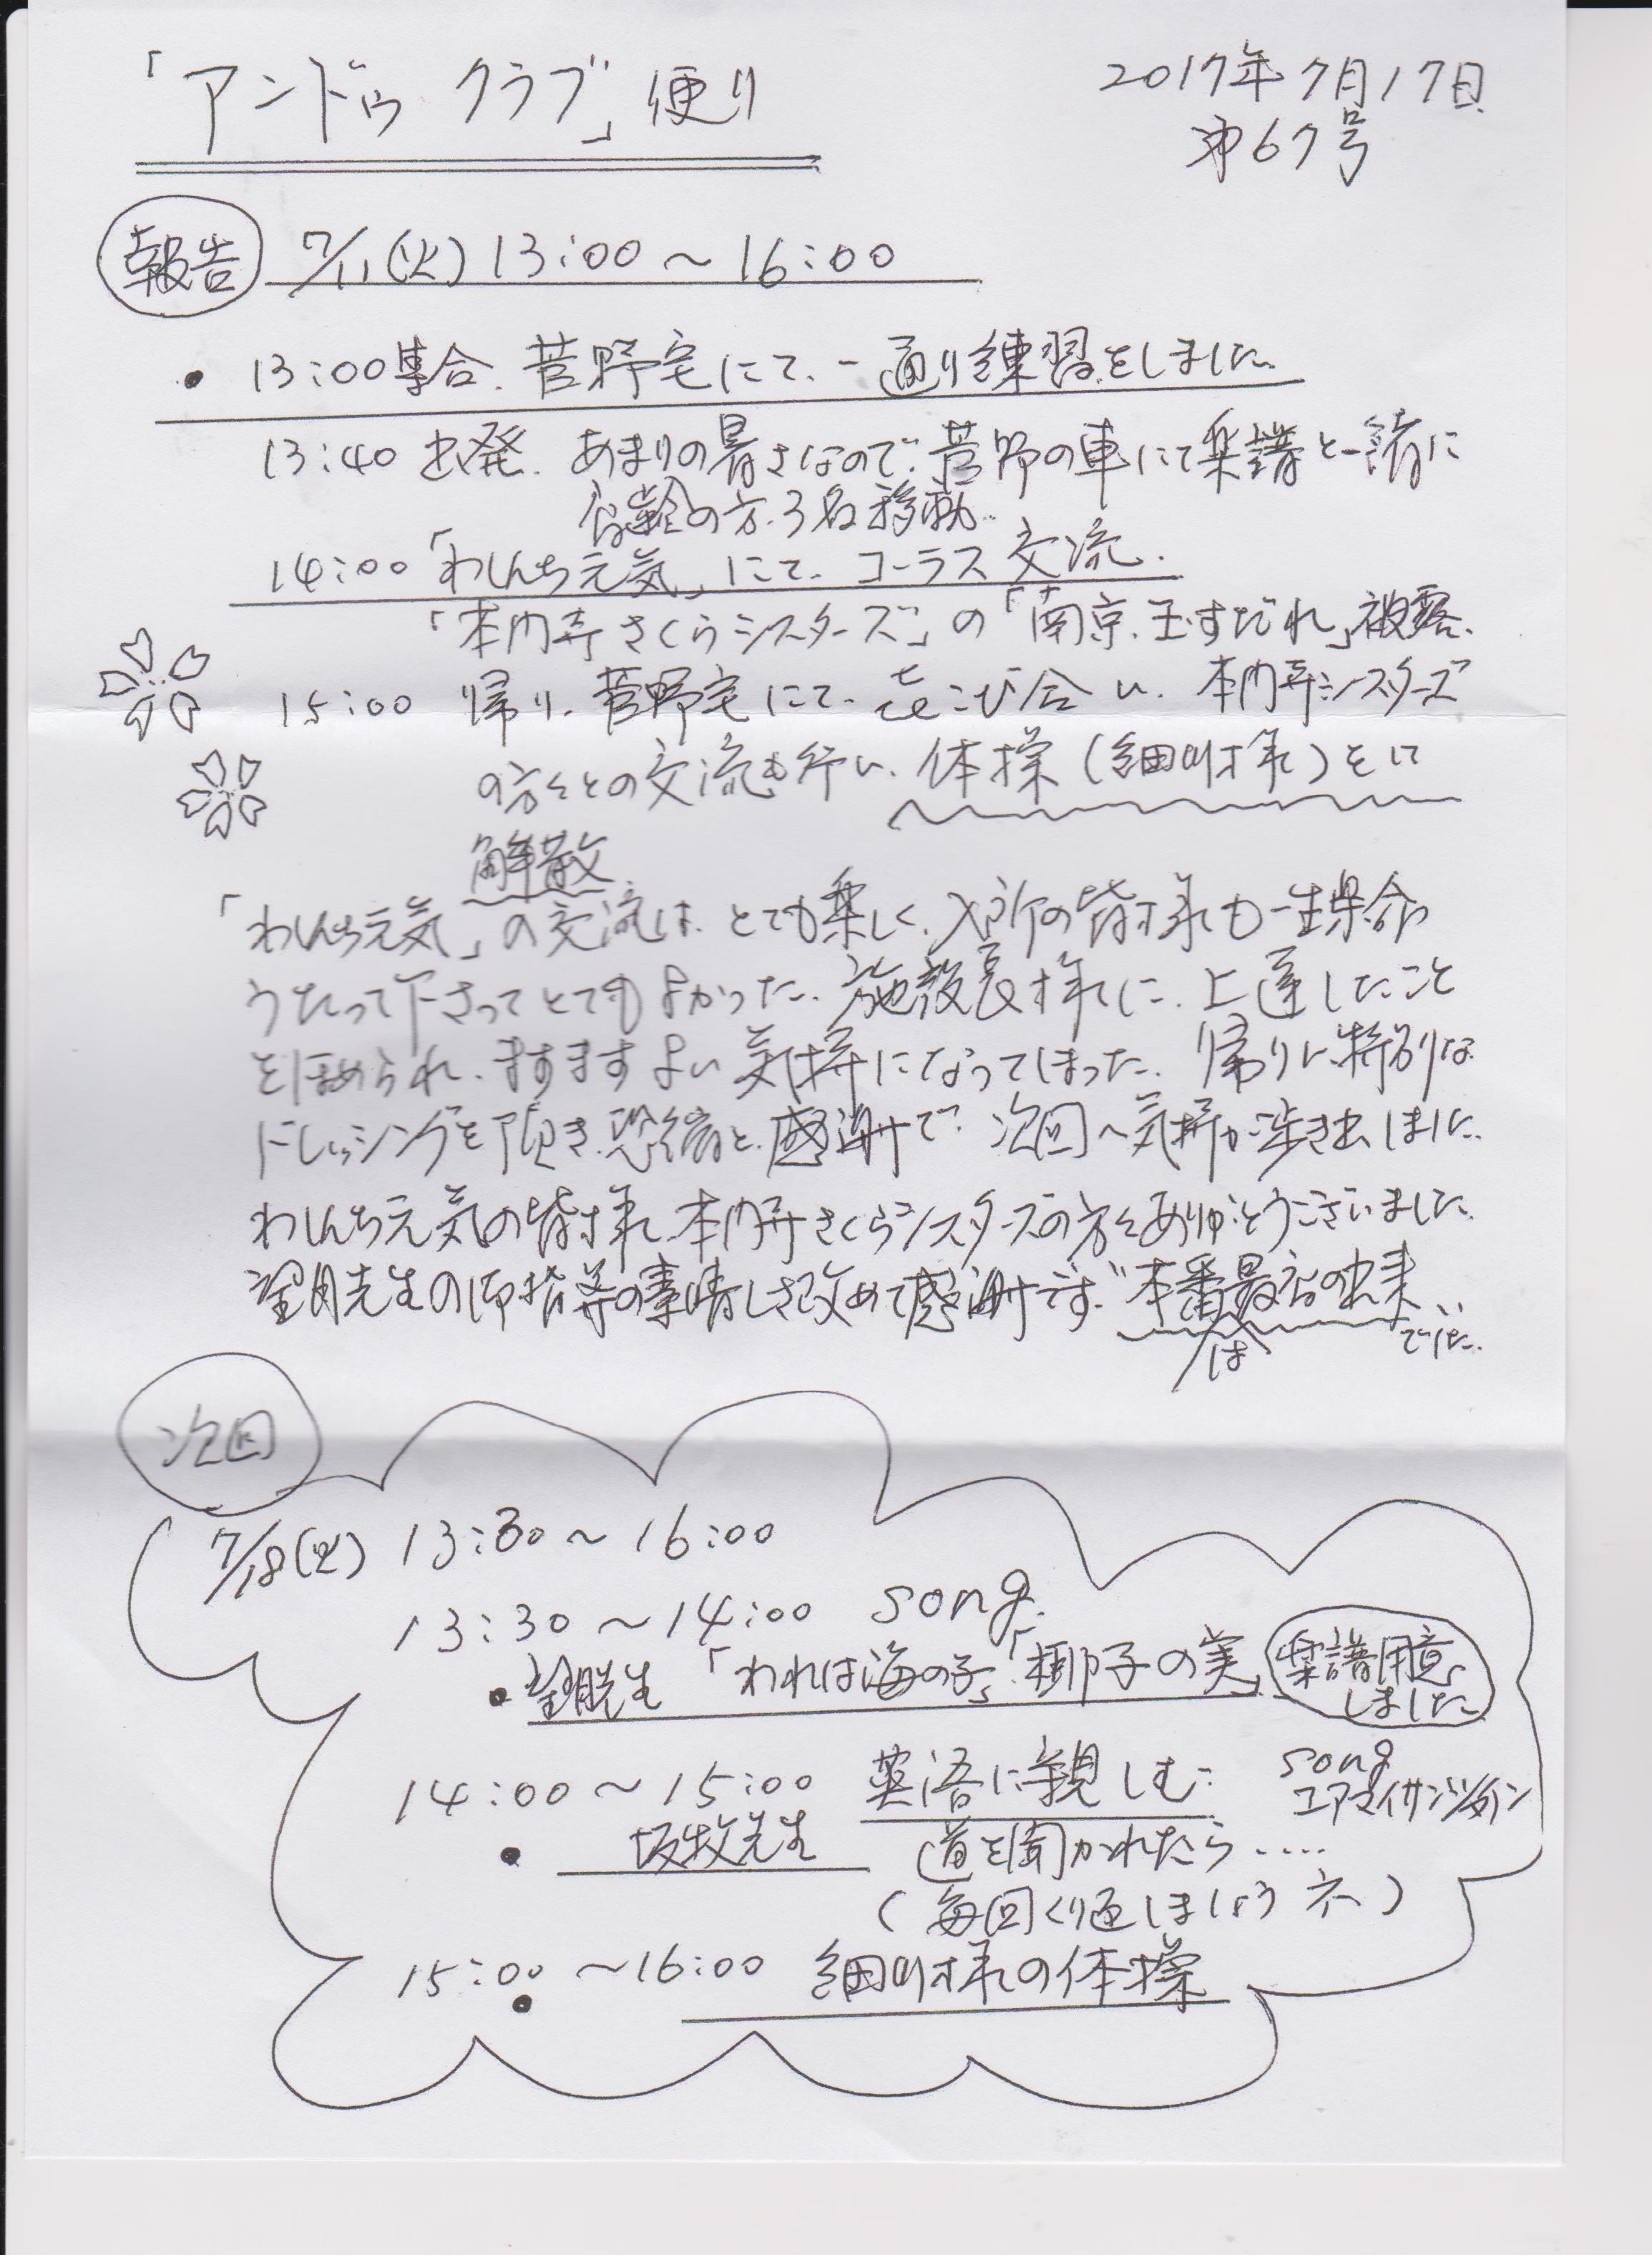 「アンドゥ クラブ」便り
2017年7月17日
第67号
報告 7/11(火) 13:00～16:00
・13:00集合、菅野宅にて、一通り練習をしました。
13:40 出発、あまりの暑さなので、菅野の車にて楽譜と一緒に
高齢の方、3名移動
14:00「わしんち元気」にて、コーラス交流、
「本門寺さくらシスターズ」の「南京、玉すだれ」披露、
15:00 帰り、菅野宅にて、㐂こび合い、本門寺シスターズ
の方々との交流も行い、体操(細川様)をして
解散
「わしんち元気」の交流は、とても楽しく、入所の皆様も一生県命
うたって下さってとてもよかった、施設長様に、上達したこと
をほめられ、ますますよい気持になってしまった、帰りに特別な
ドレッシングを頂き、恐縮と、感謝で、次回へ気持が歩き出しました
わしんち元気の皆様、本門寺さくらシスターズの方々ありがとうございました
望月先生の御指導の素晴しさ改めて感謝です、"本番は最高の出来"でした、
次回
7/18(火) 13:30～16:00
13:30～14:00 song
・望月先生 「われは海の子」「椰子の実」 楽譜用意しました
14:00～15:00 英語に親しむ: song
ユアマイサンシャイン
・坂牧先生 道を聞かれたら……
(毎回くり返しましょうネ)
15:00～16:00 細川様の体操